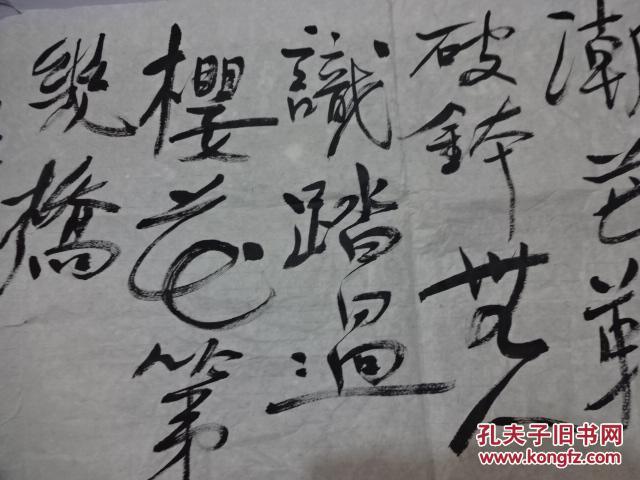 潮芒鞋
破鉢無人
識踏過
櫻花第
幾橋
孔夫子旧书网
www.kongfz.com